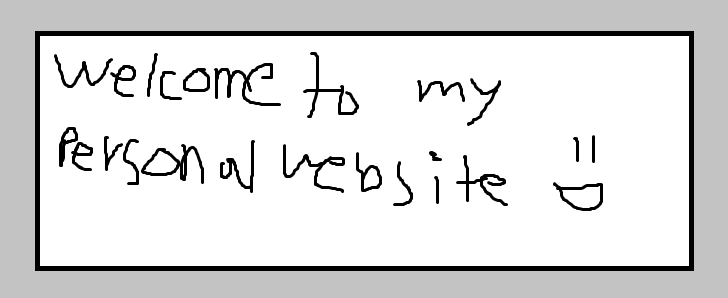 welcome to my
Personal website :D